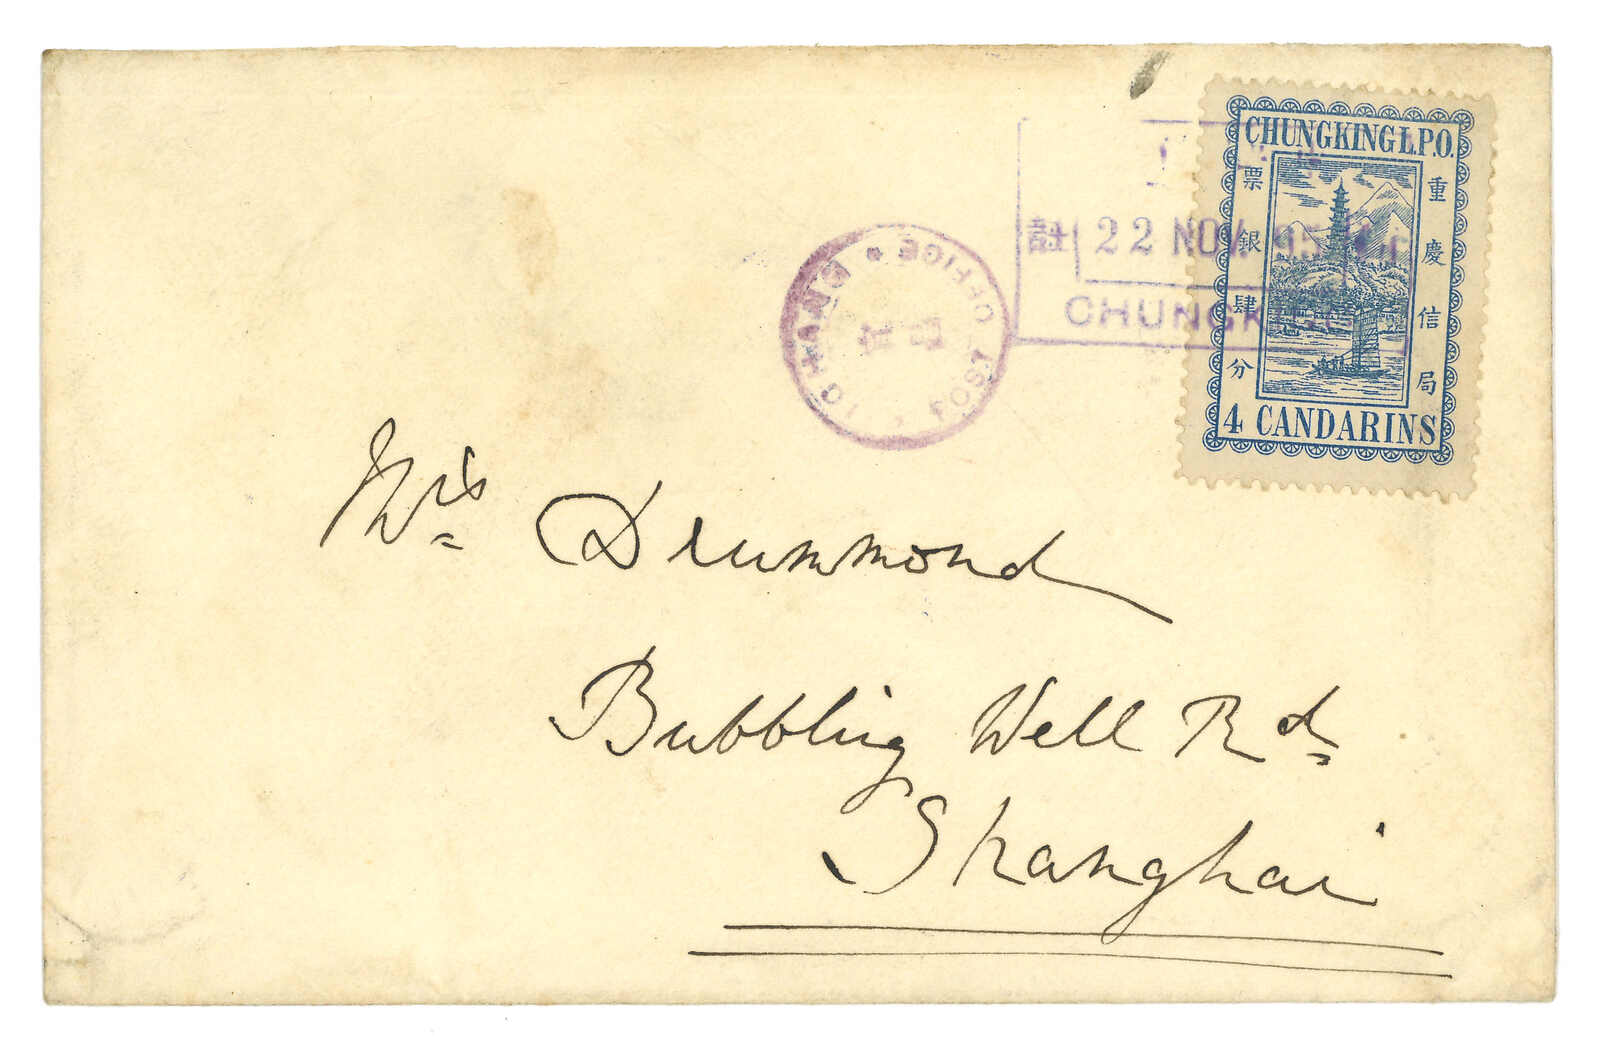 CHUNGKING L.P.O.
重慶信局
票銀肆分
4 CANDARINS
22 NOV. 95
CHUNGKING
ICHANG
POST OFFICE
Mrs Drummond
Bubbling Well Rd
Shanghai